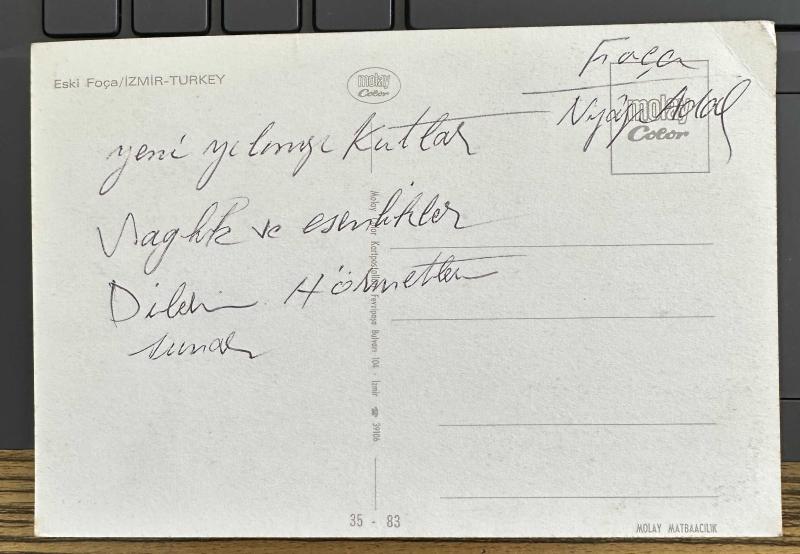 Eski Foça/İZMİR-TURKEY
molay
Color
Foça
molay
Color
yeni yılınızı Kutlar
Sağlık ve esenlikler
Diler Hörmetler
sunar
Molay Kartpostalları Fevzipaşa Bulvarı 104 - İzmir ☎ 39106
35 - 83
MOLAY MATBAACILIK